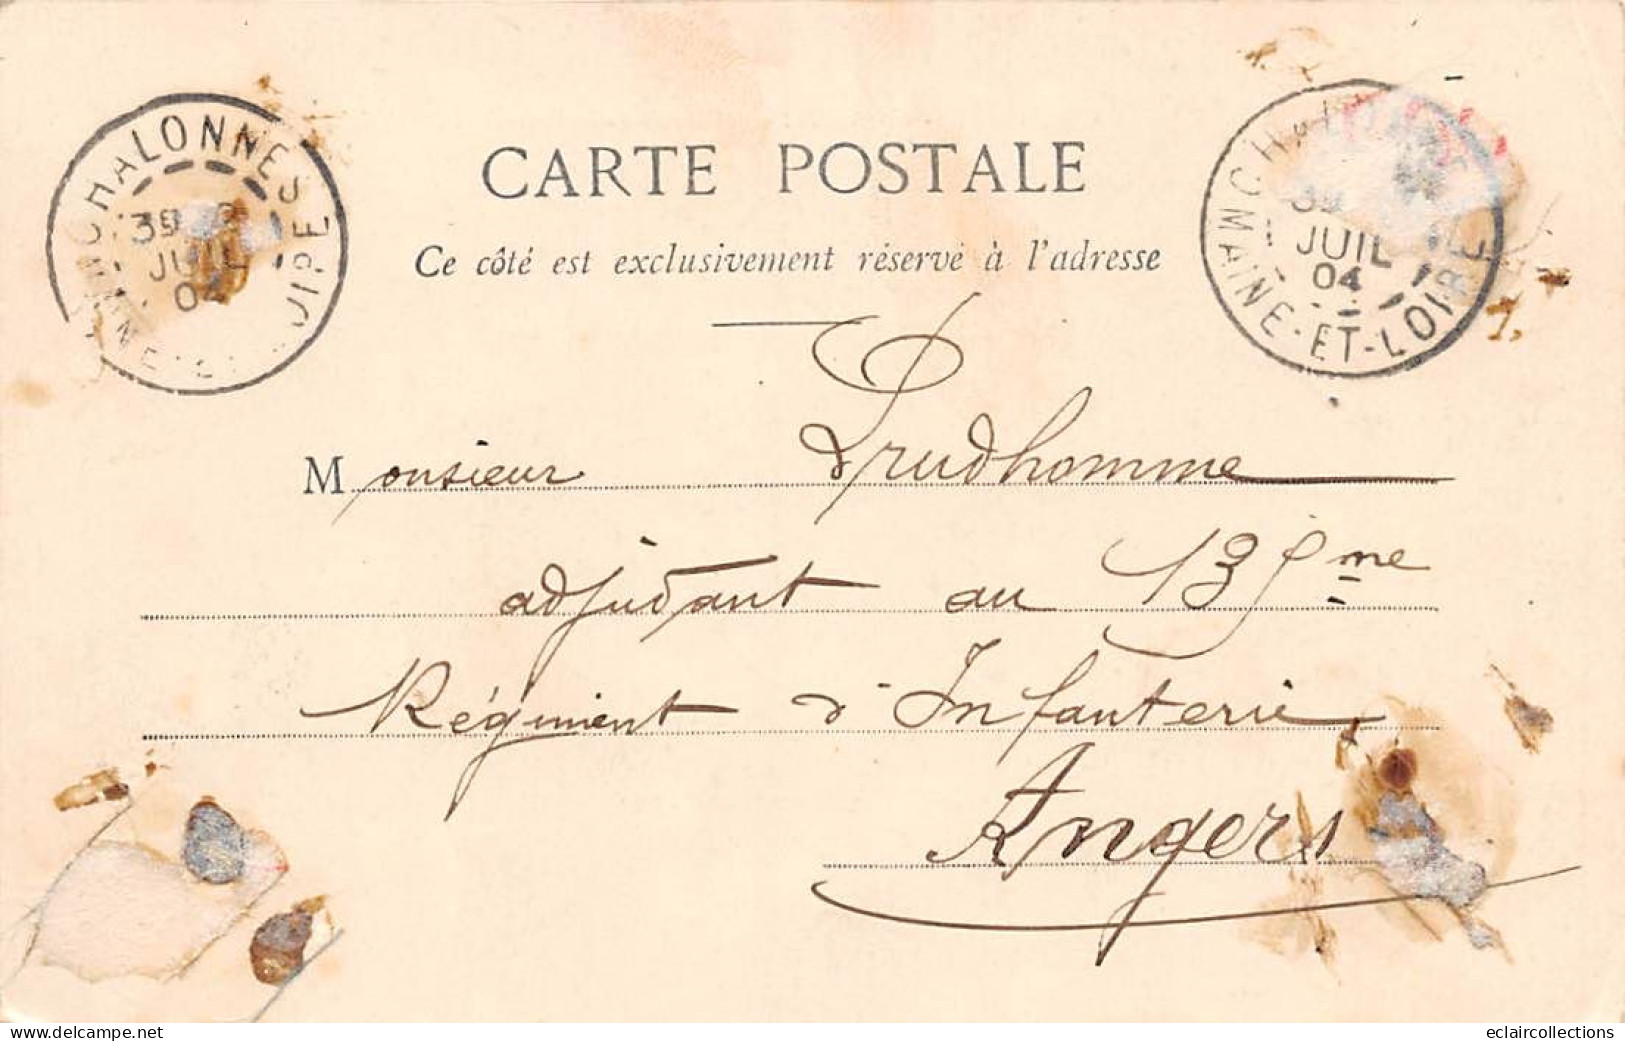 CHALONNES
JUIL
CARTE POSTALE
Ce côté est exclusivement réservé à l'adresse
JUIL
04
MAINE-ET-LOIRE
Monsieur Prudhomme
adjudant au 135me
Régiment d'Infanterie
Angers
eclaircollections